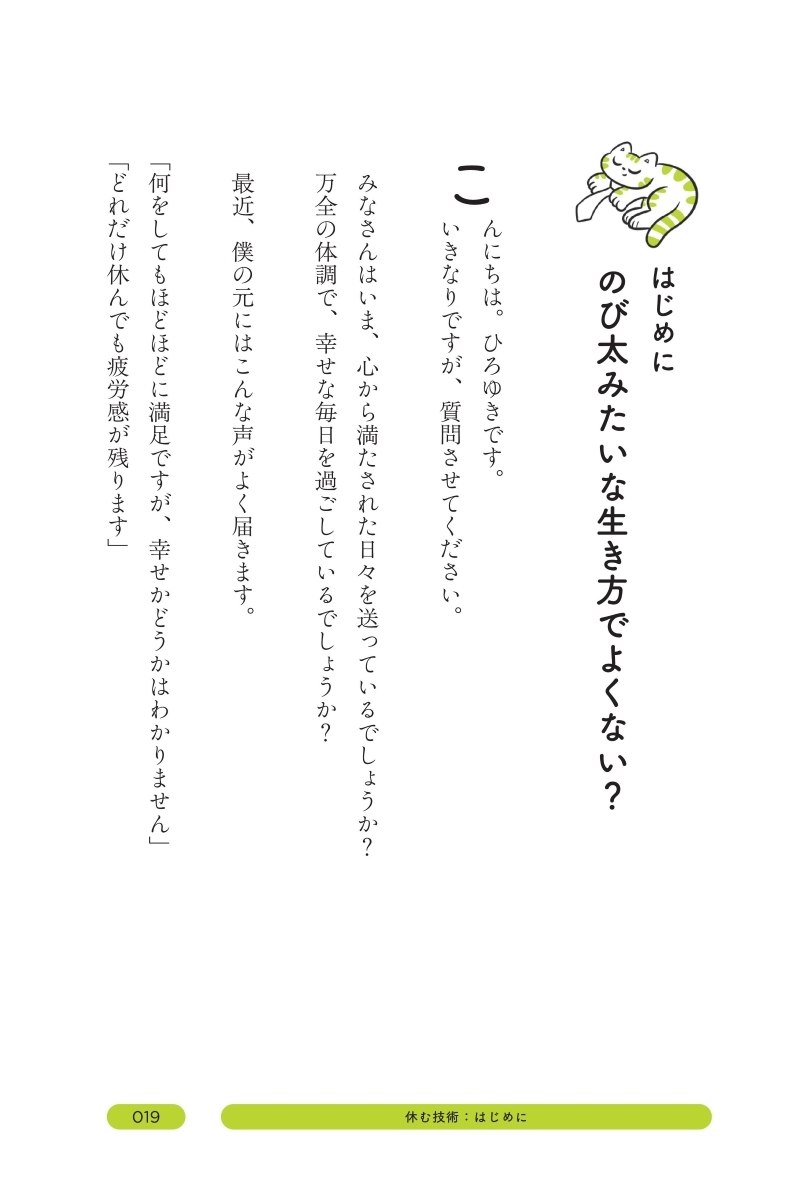 はじめに
のび太みたいな生き方でよくない？
こんにちは。ひろゆきです。
いきなりですが、質問させてください。
みなさんはいま、心から満たされた日々を送っているでしょうか？
万全の体調で、幸せな毎日を過ごしているでしょうか？
最近、僕の元にはこんな声がよく届きます。
「何をしてもほどほどに満足ですが、幸せかどうかはわかりません」
「どれだけ休んでも疲労感が残ります」
019
休む技術：はじめに